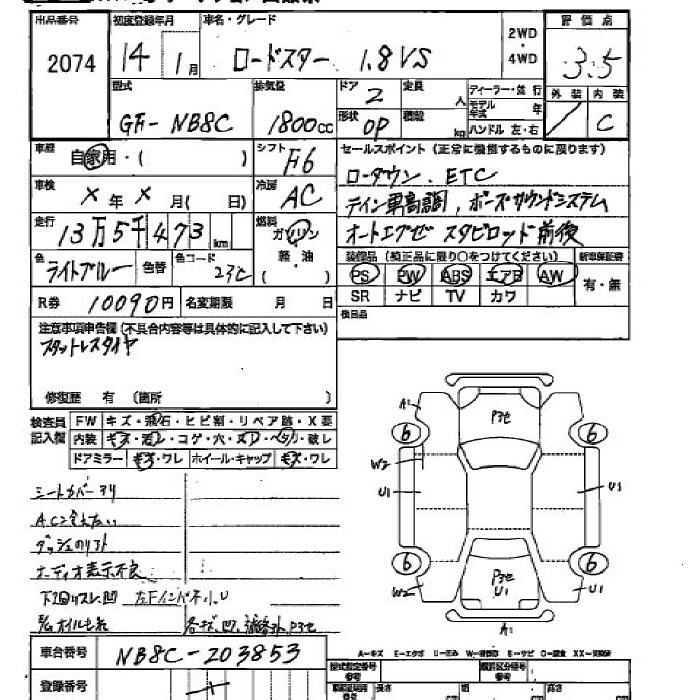 出品番号 初度登録年月 車名・グレード 評価点
2074 14 1月 ロードスター 1.8VS 2WD・4WD 3.5
外装 内装
C
型式 排気量 ドア 定員 ディーラー・並行
GF-NB8C 1800cc 2 人 モデル年式 年
形状 積載 ハンドル 左・右
OP kg
車歴 自家用・( ) シフト F6 セールスポイント(正常に機能するものに限ります)
車検 X年X月( 日) 冷房 AC ローダウン、ETC
テイン車高調、ボーズサウンドシステム
走行 13万5千473km 燃料 ガソリン オートエグゼ スタビロッド前後
軽・油
( )
色 ライトブルー 色替 色コード 23C 装備品(純正品に限り○をつけてください) 新車保証書
PS PW ABS エアB AW 有・無
R券 10090円 名変期限 月 日 SR ナビ TV カワ
検目品
注意事項申告欄(不具合内容等は具体的に記入して下さい)
スタットレスタイヤ
修復歴 有 (箇所 )
検査員記入欄 FW キズ・飛石・ヒビ割・リペア跡・X要
内装 キズ・汚レ・コゲ・穴・スレ・ヘタリ・破レ
ドアミラー キズ・ワレ ホイール・キャップ キズ・ワレ
シートカバースリ
AC冷えない
オーディオ表示不良
A1 P3セ
6 6
W2 U1 U1
6 6
W2 P3セ U1 U1
A1
A=キズ E=エクボ U=凹み W=補修跡 S=サビ C=腐食 XX=交換済
車台番号 NB8C-203853 型式指定番号 参考 類別区分番号 参考
登録番号 長さ 幅 高さ